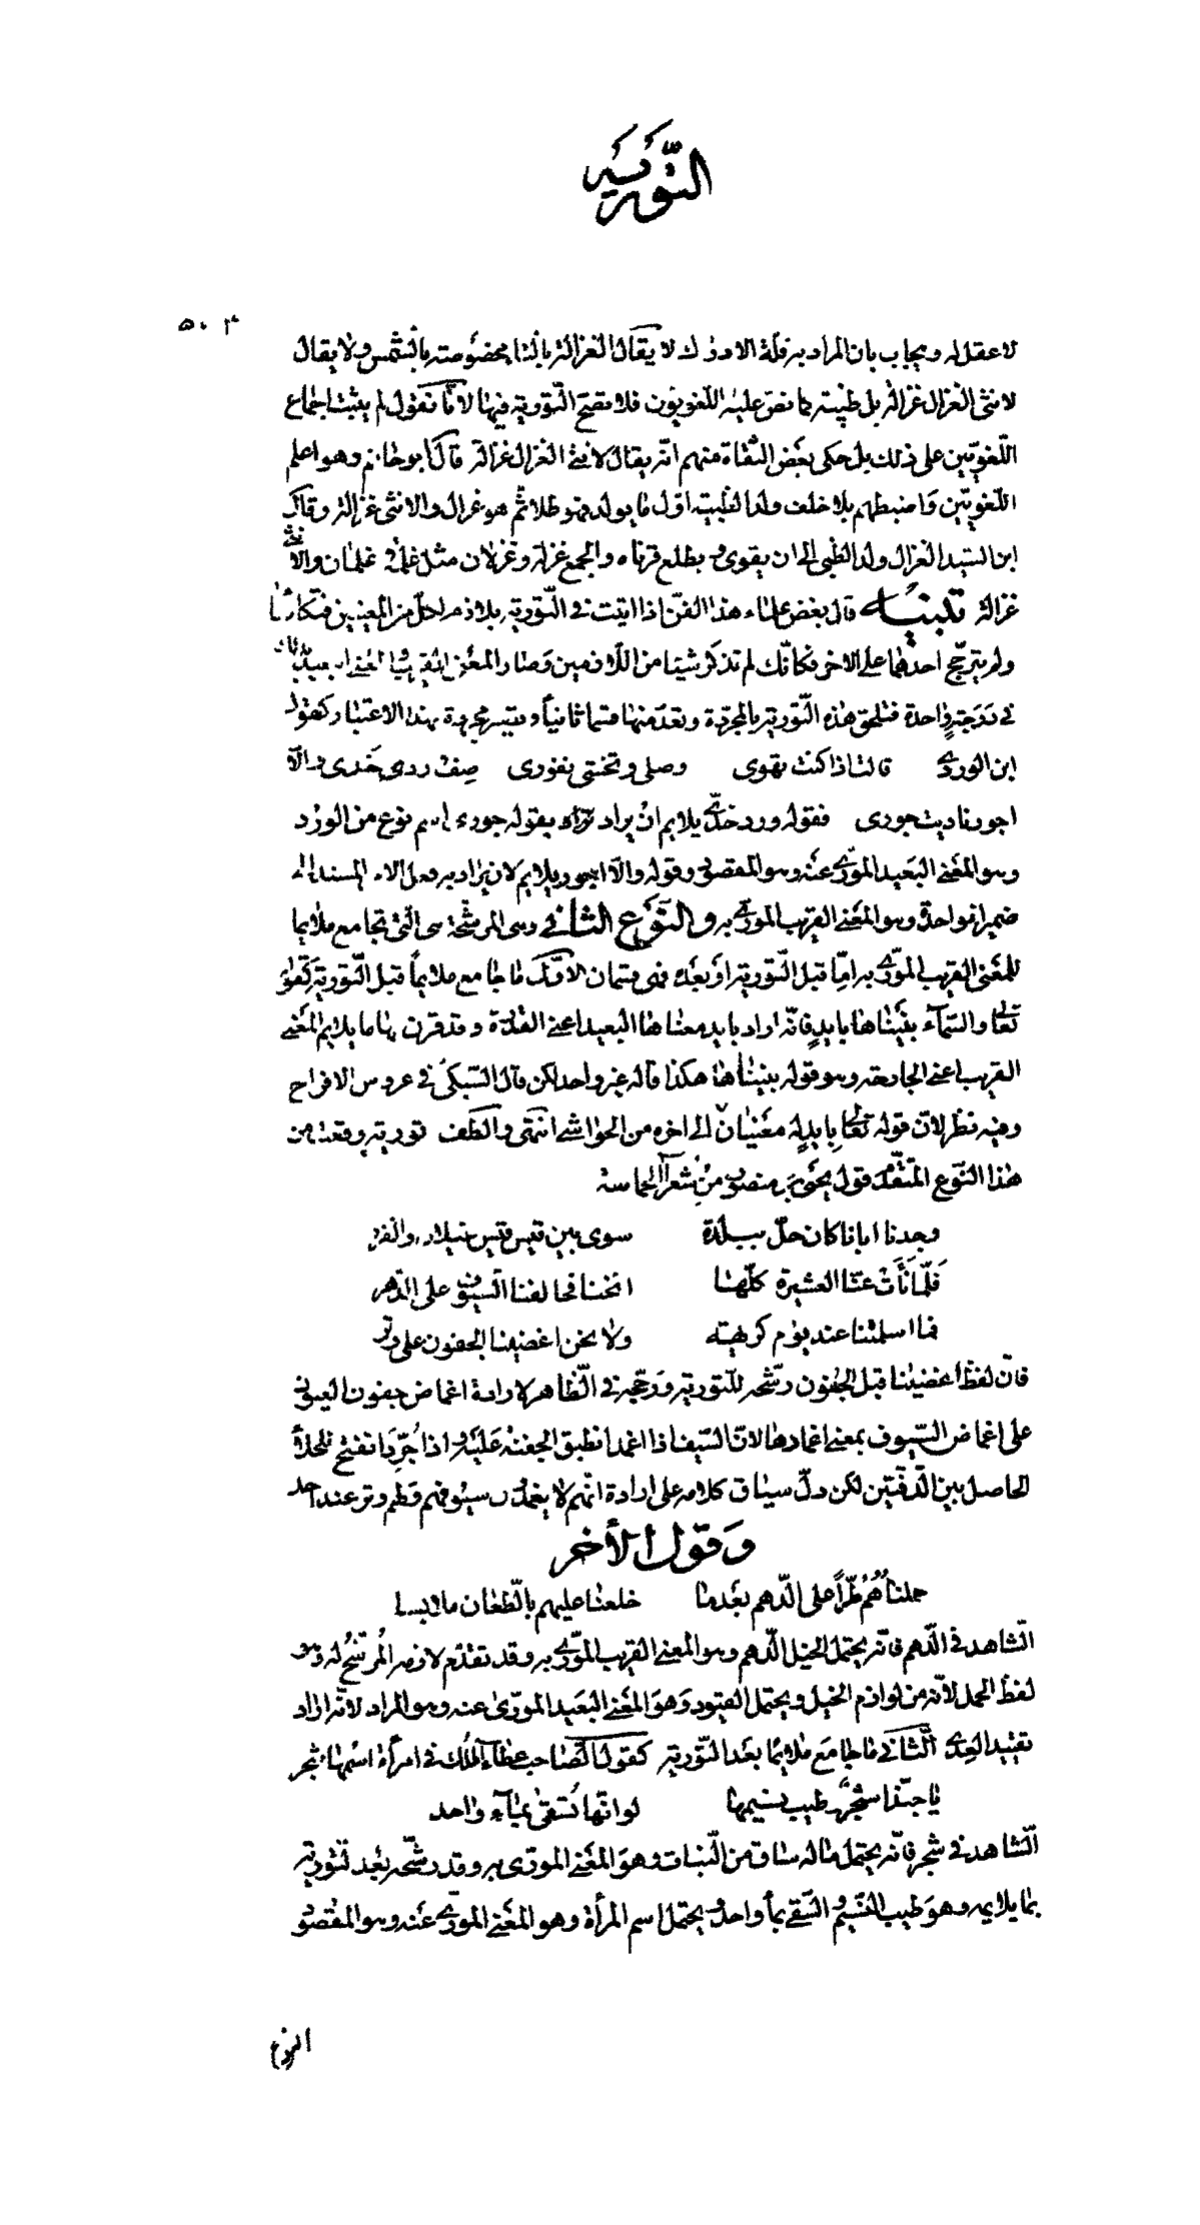 التّورية
٥٠٣
لا عقل له ويجاب بان المراد به قلة الادراك لا يقال الغزالة بالتا مخصوصة بالشمس ولا يقال
لانثى الغزال غزالة بل ظبية كما نص عليه اللغويون فلا تصح التّورية فيها لانّا نقول لم يثبت اجماع
اللّغويّين على ذلك بل حكى بعض الثقاة منهم انه يقال لانثى الغزال غزالة قال ابو حاتم وهو اعلم
اللغويّين وَاضبطهم بلا خلف ولد الظبية اوّل ما يولد فهو طلا ثم هو غزال والانثى غزالة وقال
ابن السّيد الغزال ولد الظبى الى ان يقوى ويطلع قرناه والجمع غزلة وغزلان مثل غلمة وغلمان والانثى
غزالة تنبيه قال بعض علماء هذا الفنّ اذا اتيت فى التّورية بلازم لكل من المعنيين فتكافئا
ولم يترجّح احدهما على الاخر فكانّك لم تذكر شيئا من اللّازمين وَصار المعنى القريب والمعنى البعيد
فى دَرَجةٍ واحدة فتلحق هذه التّورية بالمجرّدة وتعدّ منها قسما ثانياً وتصير مجردة بهذا الاعتبار كقول
ابن الوردى قالت اذا كنت تهوى وصلى وتخشى نفورى صف ورد خدى والّا
اجور ناديت جورى فقوله ورد خدّى يلايم انْ يراد بقوله جورى اسم نوع من الورْد
وهو المعْنى البَعيد المورّى عنَه وهو المقصود وقوله والّا اجور يلايم لان يراد به فعل الامر المسند الى
ضمير الواحدة وهو المعْنى القريب المورّى به والنّوع الثانى وهى المرشّحة هى الّتى تجامع ملايما
للمعْنى القريب المورّى به امّا قبل التّورية اوْ بعْدَه فهى قسمان الاوّل ما جامع ملايماً قبل التّورية كقوله
تعَالى والسّمآء بنَيْناها بايدٍ فانّه اراد بايد معناها البعيد اعنى القدرة وقد قرن بها ما يلايم المعْنى
القريب اعنى الجارحة وهو قوله بنيناها هكذا قاله غير واحد لكن قال السّبكى فى عروس الافراح
وفيه نظر لان قوله تعَالى بايدٍ له معْنيَان الى اخره من الحواشى انتهى والطف تورية وقعت من
هذا النّوع المتقدّم قول يحْيى بن منصور من شعرآء الحماسة
وجدنا ابانا كان حلّ ببلدة سوى بين قيس قيس عيلان والفزر
فَلمّا نَأَتْ عنّا العشيرة كلّها انخنا فحالفنا السّيوف على الدّهر
فما اسلمتنا عند يوم كريهة ولا نحن اغضينا الجفون على وتر
فانّ لفظ اغضينا قبل الجفون رشّحه للتورية ورجّحه فى الظّاهر لارادة اغماض جفون العيون
على اغماض السّيوف بمعنى اغمادها لان السّيف اذا اغمد انطبق الجفن عَليْه واذا جُرِّدَ انفتح للخلآء
الحاصل بين الدّفّتين لكن دلّ سياق كلامه على ارادة انّهم لا يغمدون سيوفهم ولهم وتر عند احد
وَقول الأخر
حملناهُم طُرّاً على الدّهم بعْدما خلعنا عليهم بالطّعان ملابسا
الشّاهد فى الدّهم فانّه يحتمل الخيل الدّهم وهو المعنى القريب المورّى به وقد تقدّم لازمه المُرشّح له وهو
لفظ الحمل لانّه من لوازم الخيل ويحتمل القيود وَهوَ المعْنى البَعيد المورّى عنه وهو المراد لانّه اراد
تقييد العدى الثّانى ما جامَع ملايمًا بعْد التّورية كقول الصّاحب عطآء الملك فى امرأة اسمها شجر
يا حبّذا شجر وطيب نسيمها لو انّها تُسقى بمآء واحد
الشّاهد فى شجر فانّه يحتمل ما له ساق من النّبات وهوَ المعْنى المورّى به وقد رشّحه بعْد التّورية
بما يلايمه وهوَ طيب النّسيم والسّقى بمآء واحد ويحتمل اسم المرأة وهو المعْنى المورّى عنَه وهو المقصود
النوع